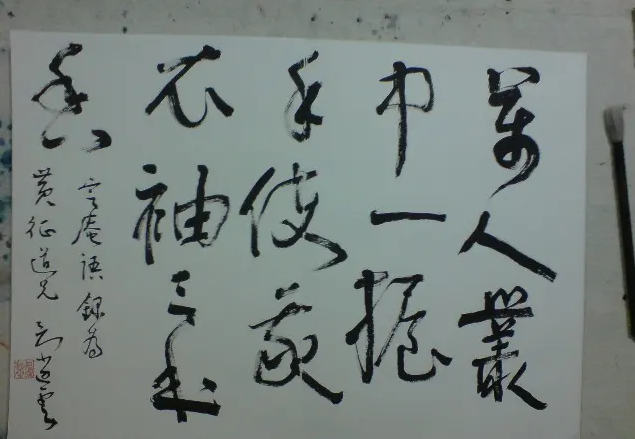 萬人叢
中一握
手使我
衣袖三年
香
定庵語錄為
黃征道兄